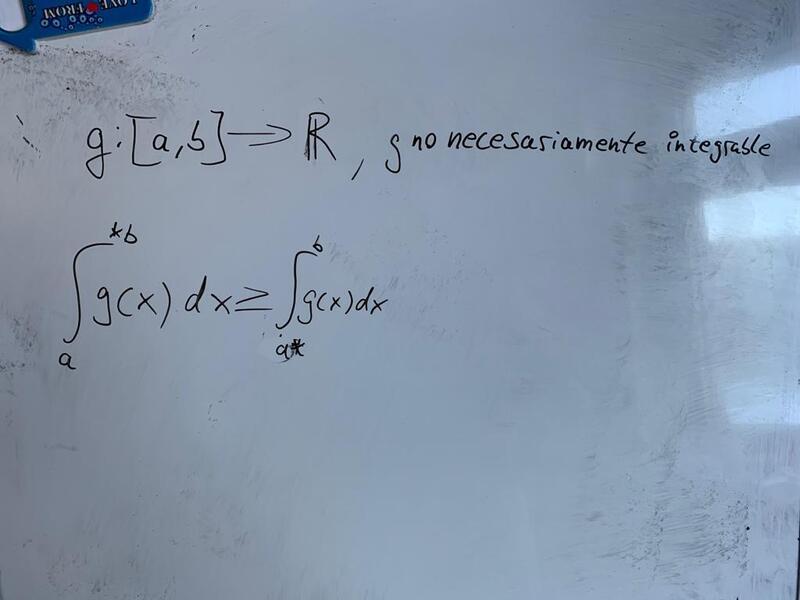 LOVE FROM
g:[a,b]→ℝ, g no necesariamente integrable
∫_a^{*b} g(x) dx ≥ ∫_{a*}^b g(x) dx